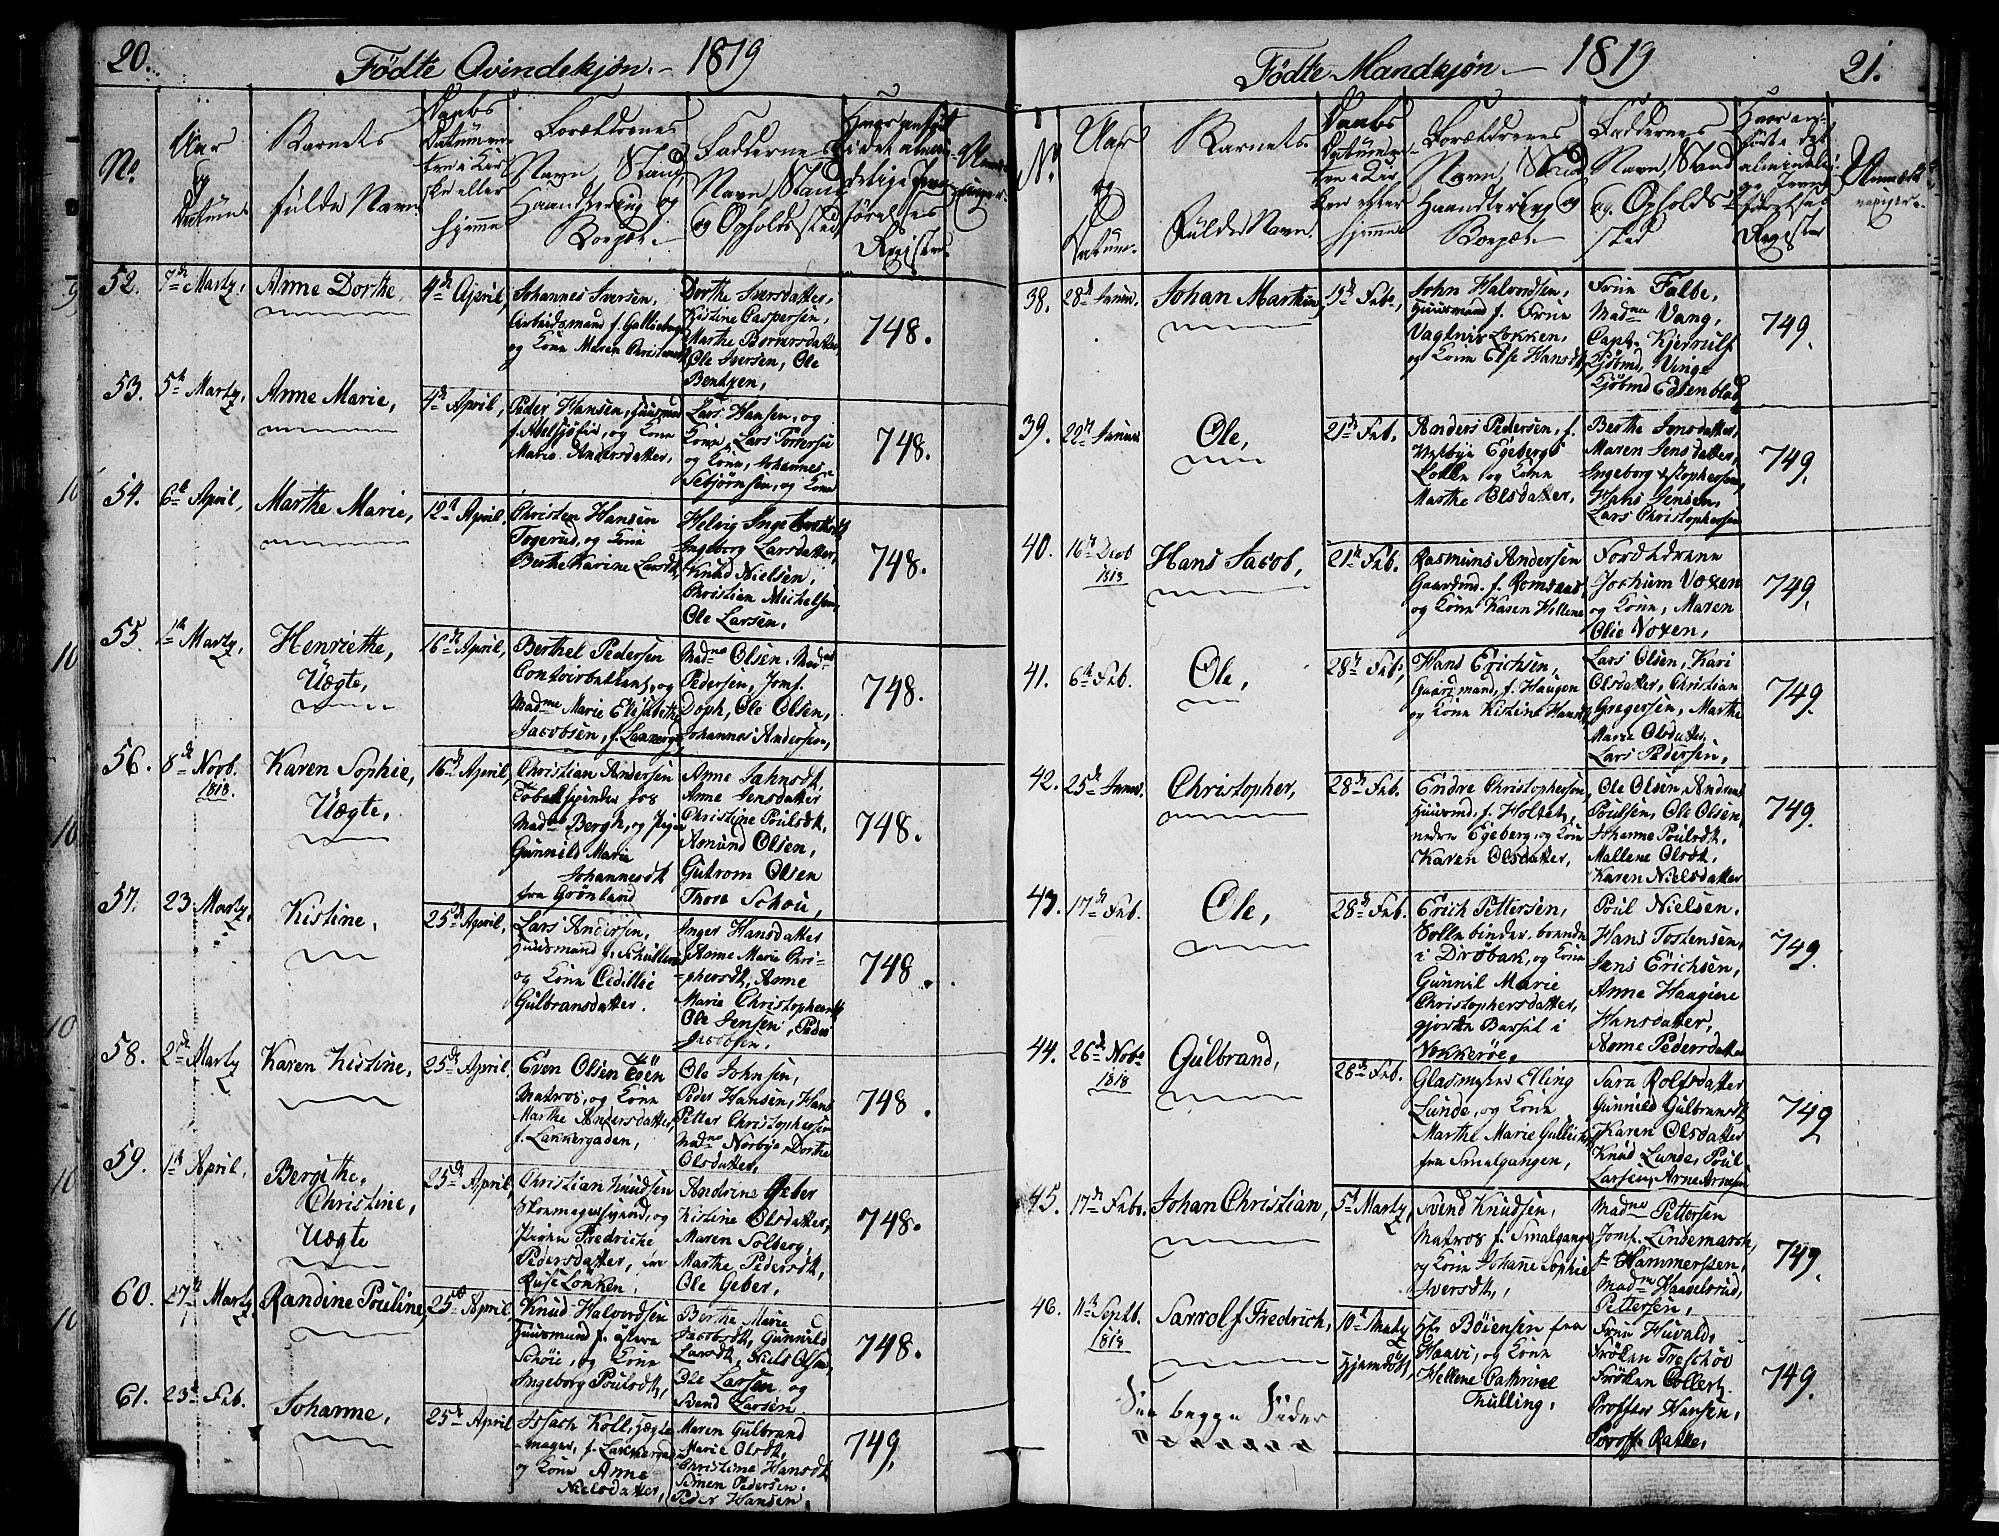 20.
Födte Qvindekjön. 1819
No.
Aar
og
Datum
Barnets
fülde Navn
Daabs
Datumen
ten i Kir
ke eller
hjemme
Forældrenes
Navn, Stand
Haandtering og
Boepæl.
Faddernes
Navn, Stand
og Opholdssted
Hvor anfört
i det almin
delige Jevn
förelses
Register
52.
7de Martz,
Anne Dorthe,
4de April,
Johannes Iversen,
Arbeidsmand f.
og Kone Maren
Dorthe Iversdatter,
Kistine Caspersen,
Marthe
Ole Iversen, Ole
Bentzen,
748.
53.
5te Martz,
Anne Marie,
4de April,
Peder Hansen,
og Kone
Marie Andersdatter,
Lars Hansen, og
Kone, Lars
og Kone, Johannes
og Kone
748.
54.
6te April,
Marthe Marie,
12te April,
Christen Hansen
Togerud, og Kone
Berthe Karine Larsdt,
Helvig
Ingeborg Larsdatter,
Knud Nielsen,
Christian Michelsen,
Ole Larsen,
748.
55.
1te Martz,
Henriethe,
Uægte,
16de April,
Berthel Pedersen
og
Madme Marie Elisabeth
Jacobsen, f.
Madme Olsen, Madme
Pedersen, Jomf.
Doph, Ole Olsen,
Johannes Andersen,
748.
56.
8de Novb.
1818.
Karen Sophie,
Uægte,
16de April,
Christian Andersen
Tobakspinder hos
Madme Bergh, og Pigen
Gunnild Marie
Johannesdt
fra Grönland
Anne Jahnsdt,
Anne Jensdatter
Christine Poulsdt,
Amund Olsen,
Gutrom Olsen
Thore Schou,
748.
57.
23 Martz,
Kistine,
25de April,
Lars Andersen,
Huusmand f.
og Kone Cedillie
Gulbransdatter.
Inger Hansdatter
Anne Marie Chri-
Anne
Marie
Ole Jensen, Peder
Jacobsen.
748.
58.
2de Martz
Karen Kistine,
25de April.
Even Olsen
Matros, og Kone
Marthe Andersdatter,
f. Lakkergaden,
Ole Johnsen,
Peder Hansen, Hans
Petter Christophersen
Madme Norbye, Dorthe
Olsdatter,
748.
59.
1te April,
Bergithe
Christine,
Uægte
25de April,
Christian Knudsen
Skomagersvend, og
Pigen Fredriche
Pedersdatter,
Andrine Geber
Kistine Olsdatter,
Maren Solberg,
Marthe Pedersdt,
Ole Geber,
748.
60.
27de Martz
Randine Pouline,
25de April,
Knud Halvordsen
Huusmand f. östere
Schöie, og Kone
Ingeborg Poulsdt,
Berthe Marie
Jacobsdt, Gunnild
Larsdt, Niels Olsen,
Ole Larsen og
Svend Larsen.
748.
61.
23de Feb.
Johanne,
25de April
Koll,
mager, f.
og Kone Anne
Nielsdatter,
Maren Gulbrand
Marie Olsdt,
Christine Hansdt
Simen Pedersen.
Peder Hansen,
749.
Födte Mandkjön. 1819
21.
No.
Aar
og
Datum.
Barnets
Fulde Navn.
Daabs
Datumen
ten i Kir
ken eller
hjemme
Forældrenes
Navn, Stand
Haandtering og
Boepæl.
Faddernes
Navn, Stand
og Opholds-
sted
Hvor an-
förte det
almindeli
ge Jevn
förelses
Register
38.
28de Janu.
Johan Marthin,
19de Feb.
John Halvordsen,
Huusmand f. Frue
og Kone Else Hansdt
Frue Falbe,
Madme Vang,
Capt. Kjerulf
Kjöbmd. Vinge
Kjöbmd
749.
39.
22de Januar
Ole,
21de Feb.
Anders Pedersen, f.
Egebergs
Lökke og Kone
Marthe Olsdatter,
Berthe Jensdatter,
Maren Jensdatter,
Ingeborg
Hans Jensen,
Lars Christophersen
749.
40.
16de Decb
1818
Hans Jacob,
21de Feb.
Rasmuns Andersen
Gaardmd. f. Romsaas,
og Kone Karen Hellene
Forældrene
Jochum Voxen
og Kone, Maren
Olie Voxen,
749.
41.
6te Feb.
Ole,
28de Feb,
Hans Erichsen,
Gaardmand, f. Haugen
og Kone Kistine Hansdt
Lars Olsen, Kari
Olsdatter, Christian
Gregersen, Marthe
Marie Olsdatter,
Lars Pedersen,
749.
42.
25de Januar.
Christopher,
28de Feb.
Endre Christophersen,
Huusmd, f. Holtet,
nedre Egeberg, og Kone
Karen Olsdatter,
Ole Olsen, Andreas
Poulsen, Ole Olsen,
Johanne Poulsdt,
Mallene Olsdt,
Karen Nielsdatter
749.
43.
17de Feb.
Ole,
28de Feb.
Erich Pettersen,
boende
i Dröbak, og Kone
Gunnil Marie
Christophersdatter,
gjorde Barsel i
Vokkeröe,
Poul Nielsen,
Hans Tostensen,
Jens Erichsen,
Anne Haagine
Hansdatter,
Anne Pedersdatter
749.
44.
26de Novb
1818
Gulbrand,
28de Feb.
Glasmester Elling
Lunde, og Kone
Marthe Marie
fra Smalgangen,
Sara Rolfsdatter
Gunnild Gulbransdt
Karen Olsdatter
Knud Lunde, Poul
Larsen, Arne Arnesen
749
45.
17de Feb.
Johan Christian,
5te Martz,
Svend Knudsen,
Matros f. Smalgangen
og Kone Johanne Sophie
Iversdt,
Madme Pettersen
Jomf. Lindemarch,
Hr Hammersten,
Madme
Pettersen,
749.
46.
11te Septb.
1818
Sarrolf Fredrich,
10de Martz
Hjemdöbt,
Hr. Böiensen fra
Haavi, og Kone
Hellene Cathrine
Thulling,
Frue Huvald,
Fröken Treschöv
Fröken Collett,
Proffter Hansen,
Proff. Rathke,
749.
begge Sider